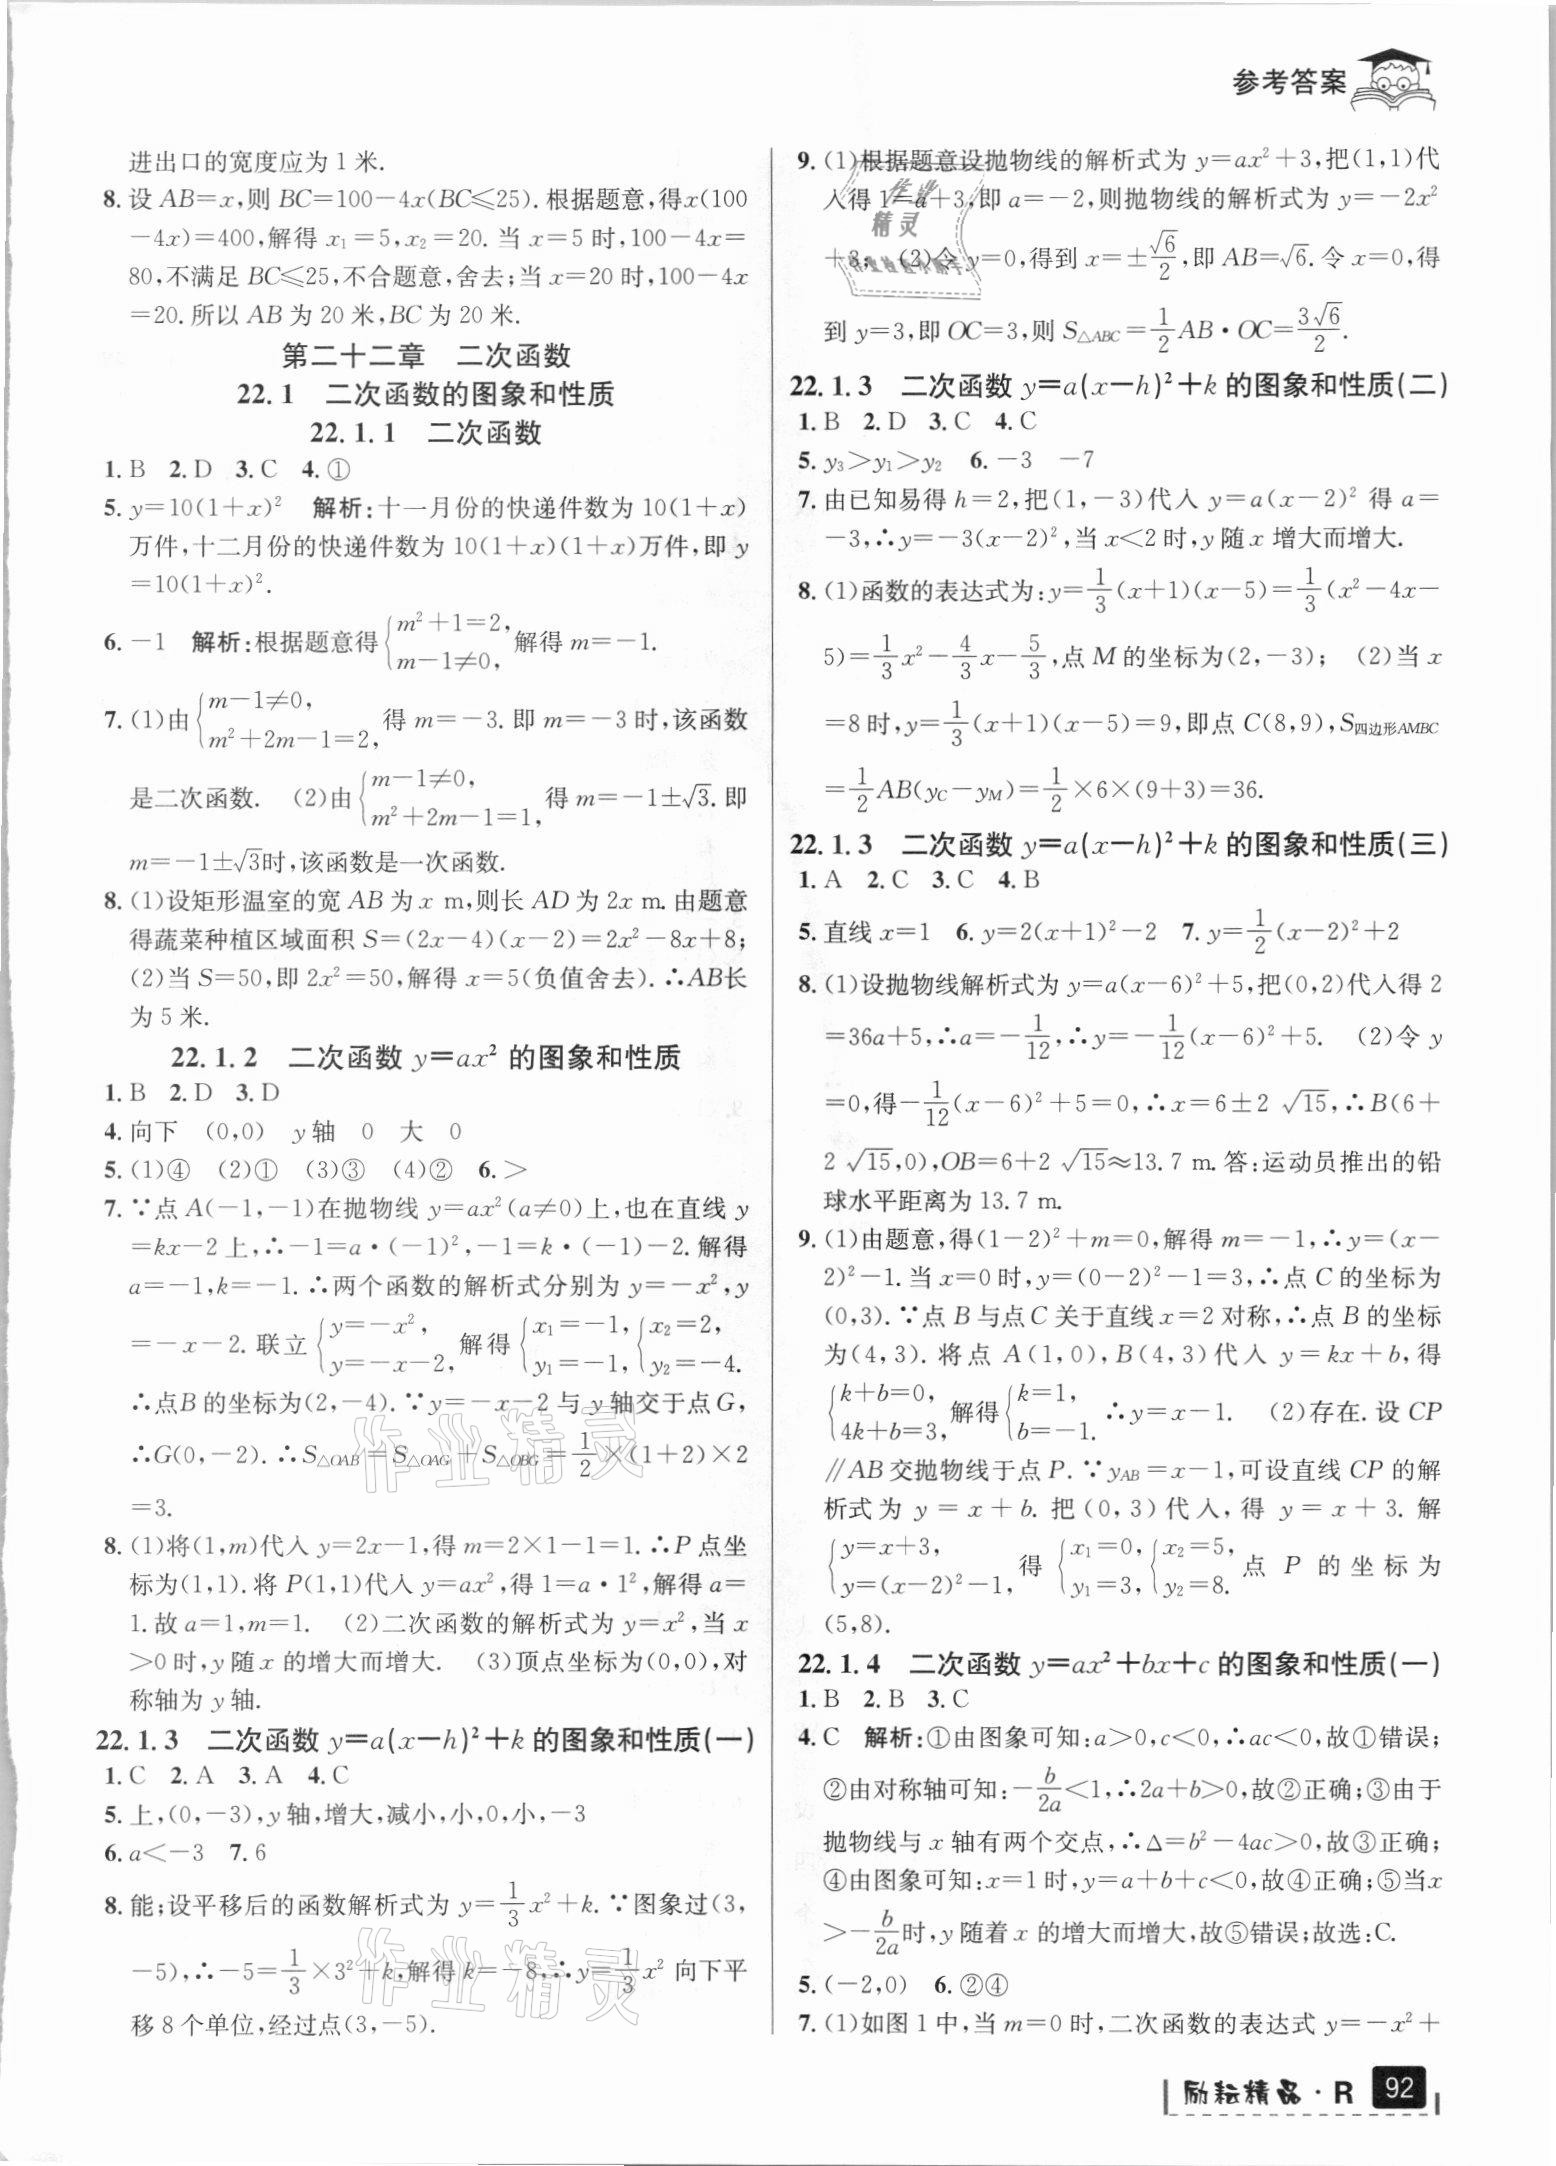 参考答案
进出口的宽度应为1米.
8. 设 AB=x,则 BC=100-4x(BC≤25).根据题意,得x(100
-4x)=400,解得 x₁=5,x₂=20. 当 x=5 时,100-4x=
80,不满足 BC≤25,不合题意,舍去;当 x=20 时,100-4x
=20.所以 AB 为 20 米,BC 为 20 米.
第二十二章 二次函数
22.1 二次函数的图象和性质
22.1.1 二次函数
1. B 2. D 3. C 4. ①
5. y=10(1+x)² 解析:十一月份的快递件数为 10(1+x)
万件,十二月份的快递件数为 10(1+x)(1+x)万件,即 y
=10(1+x)².
6. -1 解析:根据题意得{m²+1=2, m-1≠0, 解得 m=-1.
7. (1)由{m-1≠0, m²+2m-1=2, 得 m=-3. 即 m=-3 时,该函数
是二次函数. (2)由{m-1≠0, m²+2m-1=1, 得 m=-1±√3. 即
m=-1±√3时,该函数是一次函数.
8. (1)设矩形温室的宽 AB 为 x m,则长 AD 为 2x m.由题意
得蔬菜种植区域面积 S=(2x-4)(x-2)=2x²-8x+8;
(2)当 S=50,即 2x²=50,解得 x=5(负值舍去).∴AB长
为 5 米.
22.1.2 二次函数 y=ax² 的图象和性质
1. B 2. D 3. D
4. 向下 (0,0) y 轴 0 大 0
5. (1)④ (2)① (3)③ (4)② 6. >
7. ∵点 A(-1,-1)在抛物线 y=ax²(a≠0)上,也在直线 y
=kx-2 上,∴-1=a·(-1)²,-1=k·(-1)-2.解得
a=-1,k=-1.∴两个函数的解析式分别为 y=-x²,y
=-x-2. 联立{y=-x², y=-x-2, 解得{x₁=-1, y₁=-1, {x₂=2, y₂=-4.
∴点B 的坐标为(2,-4).∵y=-x-2 与 y 轴交于点G,
∴G(0,-2).∴S△OAB=S△OAG+S△OBG=1/2×(1+2)×2
=3.
8. (1)将(1,m)代入 y=2x-1,得 m=2×1-1=1.∴P 点坐
标为(1,1).将 P(1,1)代入 y=ax²,得 1=a·1²,解得 a=
1.故 a=1,m=1. (2)二次函数的解析式为 y=x²,当 x
>0 时,y 随 x 的增大而增大. (3)顶点坐标为(0,0),对
称轴为 y 轴.
22.1.3 二次函数 y=a(x-h)²+k 的图象和性质(一)
1. C 2. A 3. A 4. C
5. 上,(0,-3),y 轴,增大,减小,小,0,小,-3
6. a<-3 7. 6
8. 能;设平移后的函数解析式为 y=1/3x²+k.∵图象过(3,
-5),∴-5=1/3×3²+k,解得 k=-8,∴y=1/3x² 向下平
移 8 个单位,经过点(3,-5).
9. (1)根据题意设抛物线的解析式为 y=ax²+3,把(1,1)代
入得 1=a+3,即 a=-2,则抛物线的解析式为 y=-2x²
+3; (2)令 y=0,得到 x=±√6/2,即 AB=√6. 令 x=0,得
到 y=3,即 OC=3,则 S△ABC=1/2AB·OC=3√6/2.
22.1.3 二次函数 y=a(x-h)²+k 的图象和性质(二)
1. B 2. D 3. C 4. C
5. y₃>y₁>y₂ 6. -3 -7
7. 由已知易得 h=2,把(1,-3)代入 y=a(x-2)² 得 a=
-3,∴y=-3(x-2)²,当 x<2 时,y 随 x 增大而增大.
8. (1)函数的表达式为:y=1/3(x+1)(x-5)=1/3(x²-4x-
5)=1/3x²-4/3x-5/3,点 M 的坐标为(2,-3); (2)当 x
=8 时,y=1/3(x+1)(x-5)=9,即点 C(8,9),S四边形AMBC
=1/2AB(yC-yM)=1/2×6×(9+3)=36.
22.1.3 二次函数 y=a(x-h)²+k 的图象和性质(三)
1. A 2. C 3. C 4. B
5. 直线 x=1 6. y=2(x+1)²-2 7. y=1/2(x-2)²+2
8. (1)设抛物线解析式为 y=a(x-6)²+5,把(0,2)代入得 2
=36a+5,∴a=-1/12,∴y=-1/12(x-6)²+5. (2)令 y
=0,得-1/12(x-6)²+5=0,∴x=6±2√15,∴B(6+
2√15,0),OB=6+2√15≈13.7 m. 答:运动员推出的铅
球水平距离为 13.7 m.
9. (1)由题意,得(1-2)²+m=0,解得 m=-1,∴y=(x-
2)²-1.当 x=0 时,y=(0-2)²-1=3,∴点 C 的坐标为
(0,3).∵点 B 与点 C 关于直线 x=2 对称,∴点 B 的坐标
为(4,3). 将点 A(1,0),B(4,3)代入 y=kx+b,得
{k+b=0, 4k+b=3, 解得{k=1, b=-1. ∴y=x-1. (2)存在. 设 CP
∥AB 交抛物线于点 P.∵yAB=x-1,可设直线 CP 的解
析式为 y=x+b. 把(0,3)代入,得 y=x+3. 解
{y=x+3, y=(x-2)²-1, 得 {x₁=0, y₁=3, {x₂=5, y₂=8. 点 P 的坐标为
(5,8).
22.1.4 二次函数 y=ax²+bx+c 的图象和性质(一)
1. B 2. B 3. C
4. C 解析:①由图象可知:a>0,c<0,∴ac<0,故①错误;
②由对称轴可知:-b/2a<1,∴2a+b>0,故②正确;③由于
抛物线与 x 轴有两个交点,∴Δ=b²-4ac>0,故③正确;
④由图象可知:x=1 时,y=a+b+c<0,故④正确;⑤当 x
>-b/2a时,y 随着 x 的增大而增大,故⑤错误;故选:C.
5. (-2,0) 6. ②④
7. (1)如图 1 中,当 m=0 时,二次函数的表达式 y=-x²+
励耘精品·R 92
作业精灵
作业精灵
作业精灵